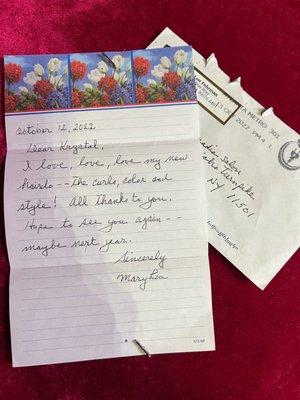 October 12, 2022
Dear Krystal,
I love, love, love my new
hairdo -- The curls, color and
style! All Thanks to you.
Hope to see you again --
maybe next year.
Sincerely
Mary Lou
METRO 301
2022 PM 4 L
NY 11501